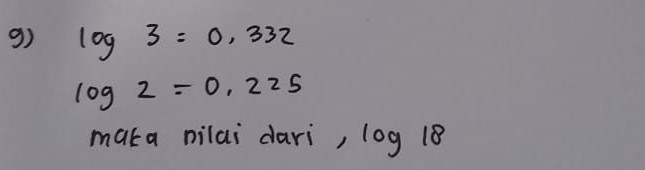 9) log 3 = 0,332
log 2 = 0,225
maka nilai dari, log 18